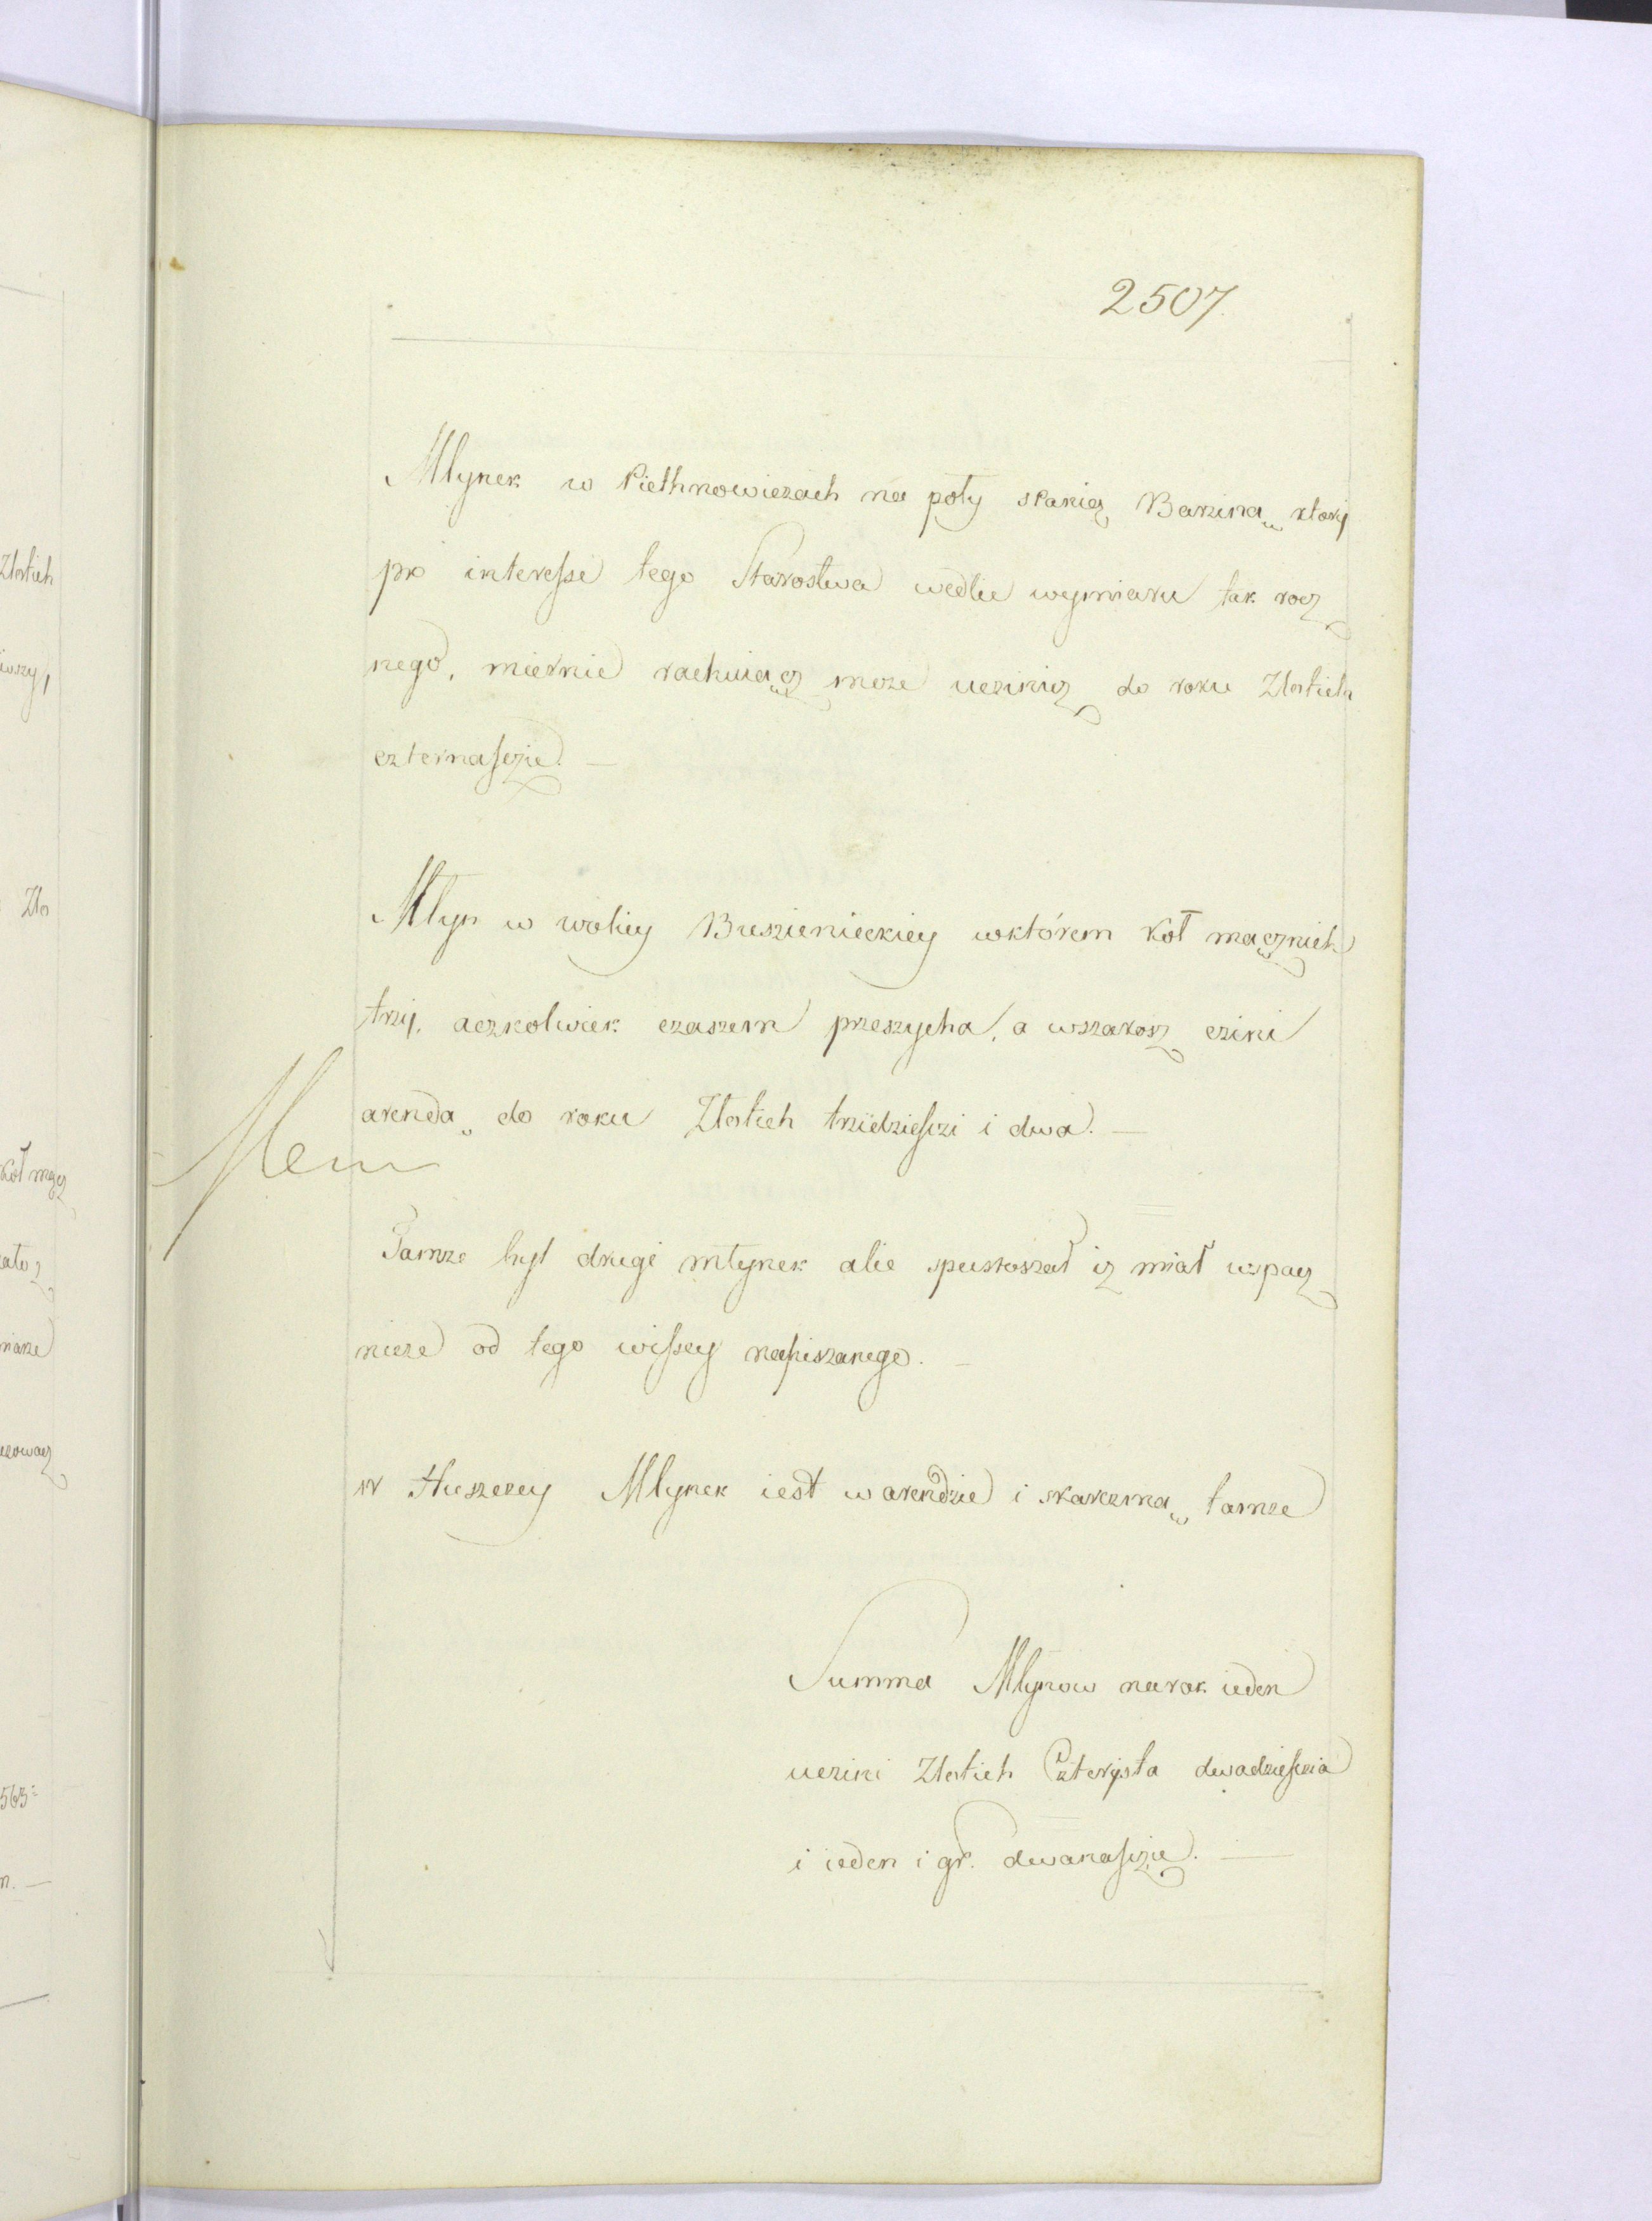 2507.
Młynek w Piethnowiczach na poły spanią Barzina, ktory
pro interesse tego Starostwa wedlie wymiaru tak rocz
nego, miernie rachuiącz może uczinicz do roku Złotich
czternasczie. —
Młyn w woliey Buszienieckiey wktórem kół mącznich
trzy, aczkolwiek czaszem przeszycha, a wszakosz czini
arendą do roku Złotich trzidziesczi i dwa. —
Tamże był drugi młynek alie spustoszał iż miał wspacz
nieze od tego wissey napiszanego. —
w Huszczey Młynek iest w arendzie i skarczmą tamże
Summa Młynow narok ieden
uczini Złotich Czterysta dwadziescia
i ieden i gr. dwanasczie. —
Złotich
iwszy,
Zło
kół mącz
563
n. —